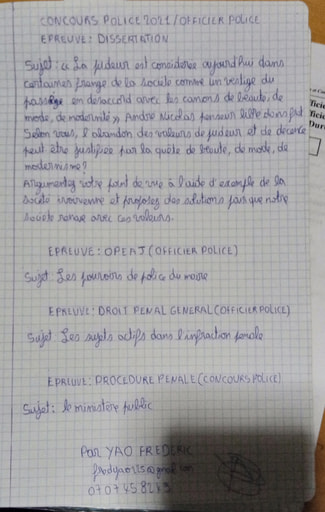 CONCOURS POLICE 2021/OFFICIER POLICE
EPREUVE: DISSERTATION
Sujet: « La pudeur est considérée aujourd'hui dans
certaines frange de la société comme un vestige du
passé en desaccord avec les canons de beauté, de
mode, de modernité », André Nicolas penseur
Selon vous, l'abandon des valeurs de pudeur et de décence
peut être justifiée par la quête de beauté, de mode, de
modernisme?
Argumentez votre point de vue à l'aide d'exemple de la
société ivoirienne et proposez des solutions pour que notre
société renoue avec ces valeurs.
EPREUVE: OPEAJ (OFFICIER POLICE)
Sujet: Les pouvoirs de police du maire
EPREUVE: DROIT PENAL GENERAL (OFFICIER POLICE)
Sujet: Les sujets actifs dans l'infraction penale
EPREUVE: PROCEDURE PENALE (CONCOURS POLICE)
Sujet: le ministère public
Par YAO FREDERIC